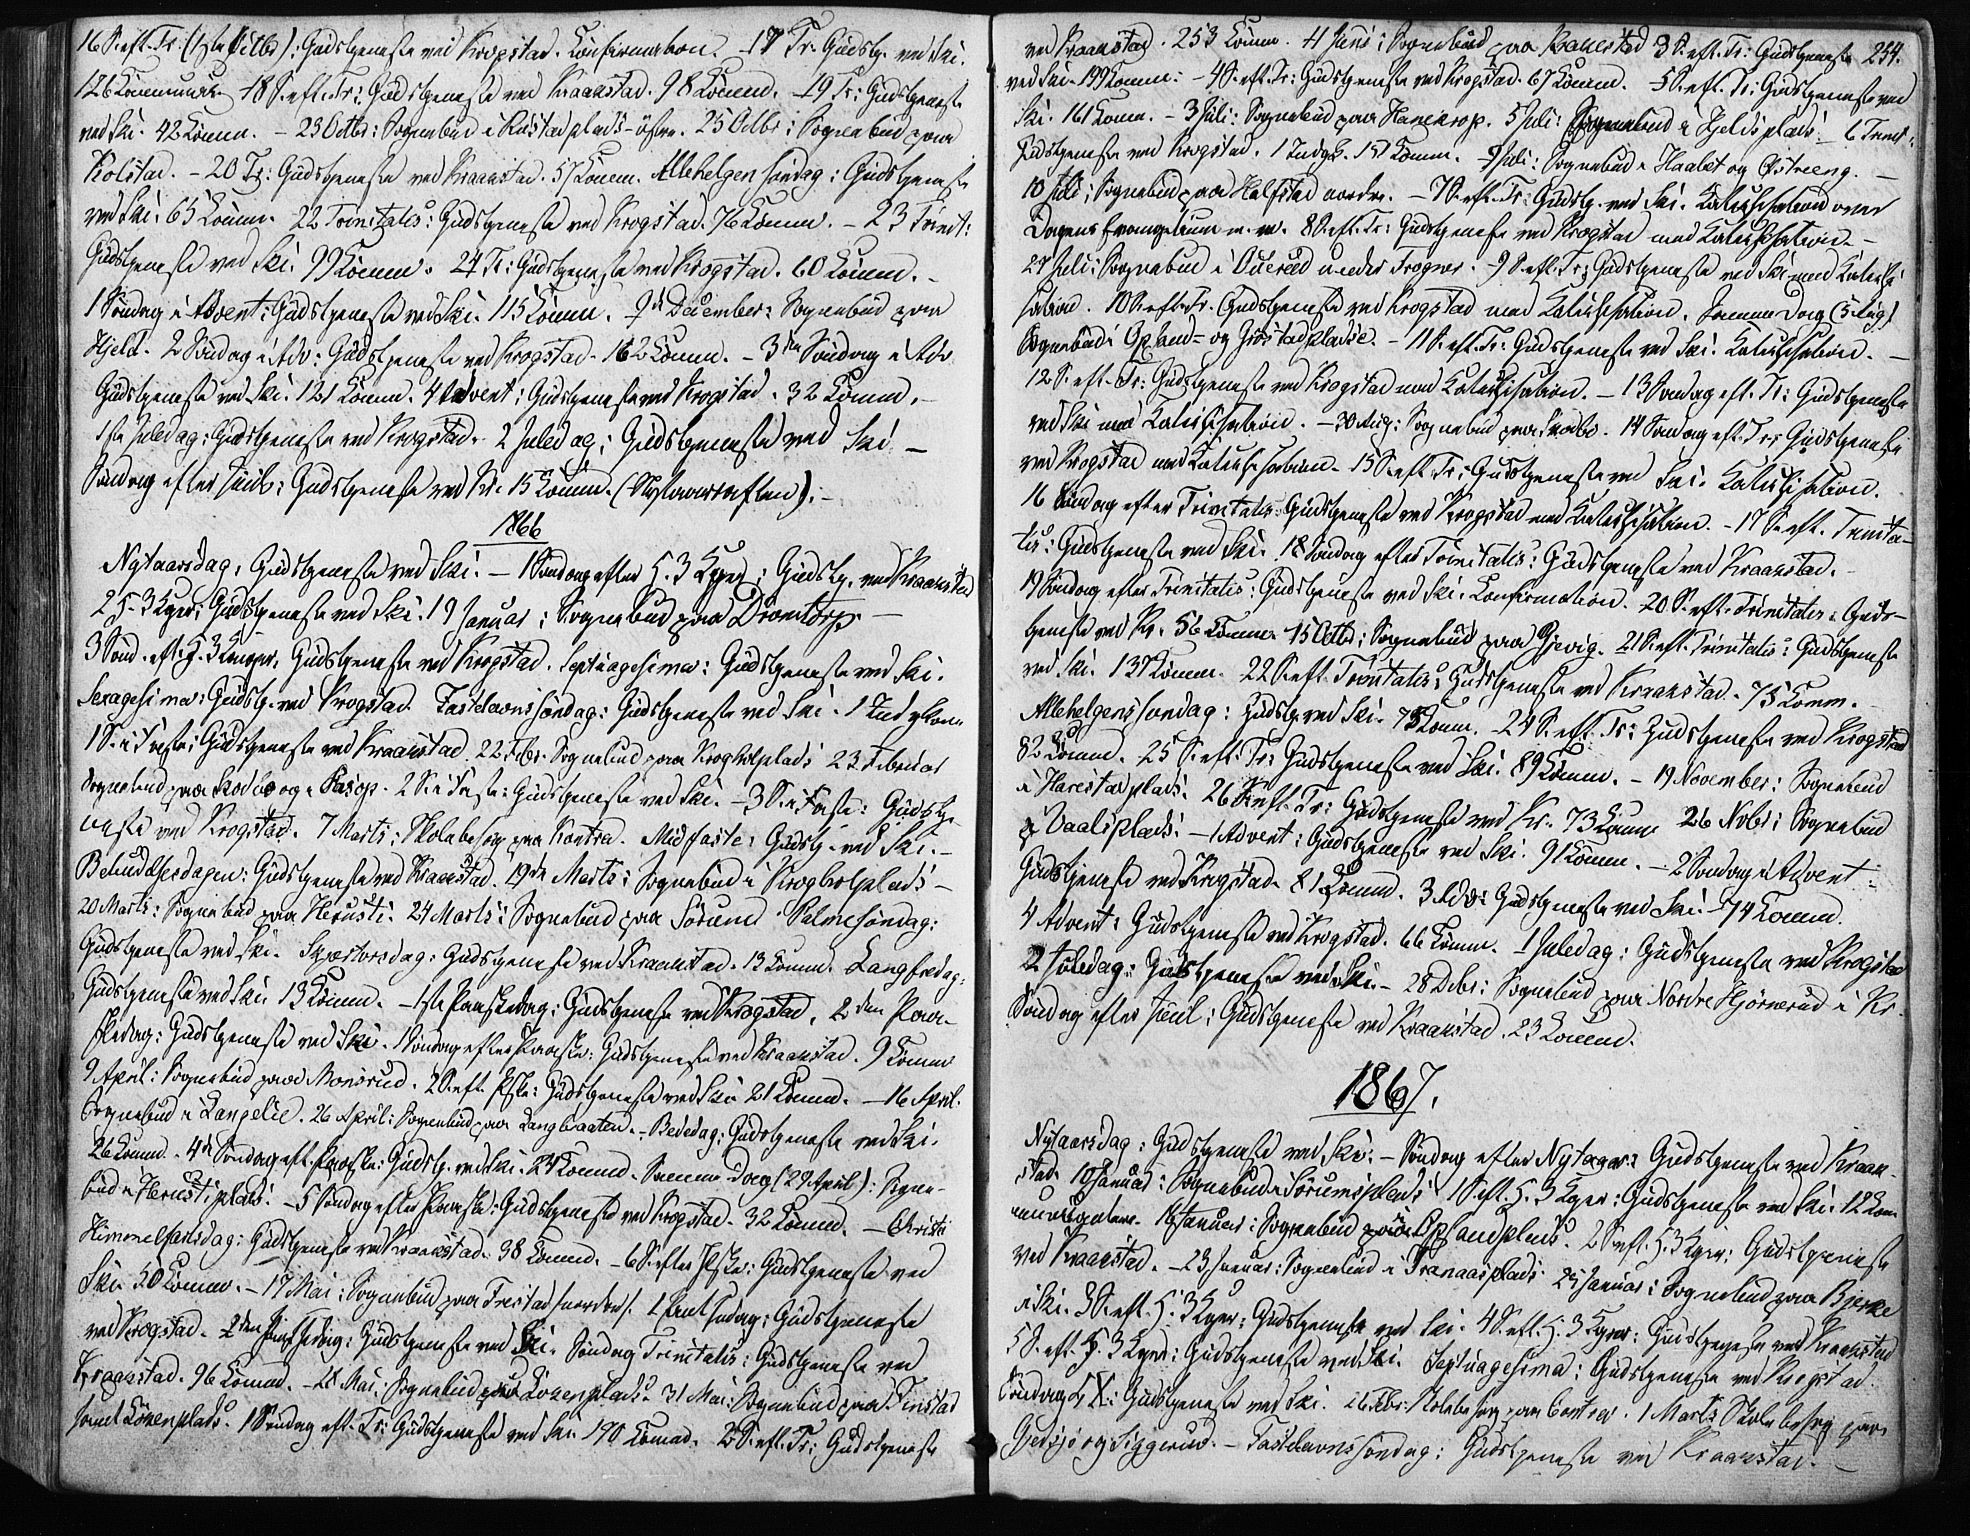 16 S. eft. Tr. (1ste Octbr): Gudstjeneste ved Krogstad. Confirmation. – 17 Tr. Gudstj. ved Ski.
126 Commun. – 18 S. eft. Tr: Gudstjeneste ved Kraakstad. 98 Comm. – 19 Tr: Gudstjeneste
ved Ski. 42 Comm. – 23 Octbr: Sognebud i Rustad plads østre. 25 Octbr: Sognebud paa
Kolstad. – 20 Tr: Gudstjeneste ved Kraakstad. 57 Comm. Allehelgen søndag: Gudstjeneste
ved Ski. 65 Comm. 22 Trinitatis: Gudstjeneste ved Krogstad. 76 Comm. – 23 Trinit:
Gudstjeneste ved Ski. 99 Comm. 24 Tr: Gudstjeneste ved Krogstad. 60 Comm. –
1 Søndag i Advent: Gudstjeneste ved Ski. 115 Comm. 9de December: Sognebud paa
Hjeld. 2 Søndag i Adv: Gudstjeneste ved Krogstad. 162 Comm. – 3die Søndag i Adv
Gudstjeneste ved Ski. 121 Comm. 4 Advent: Gudstjeneste ved Krogstad. 32 Comm. –
1ste Juledag: Gudstjeneste ved Krogstad. 2 Juledag: Gudstjeneste ved Ski. –
Søndag efter Juul: Gudstjeneste ved Kr. 15 Comm. (Nytaarsaften). –
1866
Nytaarsdag: Gudstjeneste ved Ski. – 1 Søndag efter H. 3 Kger: Gudstj. ved Kraakstad
2 H. 3 Kger: Gudstjeneste ved Ski. 19 Januar: Sognebud paa Dromtorp –
3 Sønd. eft. H. 3 Konger: Gudstjeneste ved Krogstad. Septuagesima: Gudstjeneste ved Ski.
Sexagesima: Gudstj. ved Krogstad. Fastelavnssøndag: Gudstjeneste ved Ski. 1
1 S. i Faste: Gudstjeneste ved Kraakstad. 22 Febr. Sognebud paa Krogholplads 23 Februar
Sognebud paa Skodbo og i Kasop. 2 S. i Faste: Gudstjeneste ved Ski. – 3 S. i Faste: Gudstje-
neste ved Krogstad. 7 Marts: Skolebesøg paa Kontra. Midfaste: Gudstj. ved Ski. –
Bebudelsesdagen: Gudstjeneste ved Kraakstad. 19de Marts: Sognebud i Krogholplads –
20 Marts: Sognebud paa Herusti. 24 Marts: Sognebud paa Sørum. Palmesøndag:
Gudstjeneste ved Ski. Skjærtorsdag: Gudstjeneste ved Kraakstad. 12 Comm. Langfredag:
Gudstjeneste ved Ski. 13 Comm. – 1ste Paaskedag: Gudstjeneste ved Krogstad. 2den Paa-
skedag: Gudstjeneste ved Ski. 1 Søndag efter Paaske: Gudstjeneste ved Kraakstad. 9 Comm
9 April: Sognebud paa Monsrud. 2 S. eft. Pske: Gudstjeneste ved Ski 21 Comm. – 16 April.
Sognebud i Langelie. 26 April: Sognebud paa Langbraaten. – Bededag: Gudstjeneste ved Ski.
26 Comm. 4de Søndag eft. Paaske: Gudstj. ved Ski. 24 Comm. Samme Dag (29 April): Sogne-
bud i Herusti plads. – 5 Søndag efter Paaske: Gudstjeneste ved Krogstad. 32 Comm. – Christi
Himmelfartsdag: Gudstjeneste ved Kraakstad. 38 Comm. – 6 S. efter Pske: Gudstjeneste ved
Ski 50 Comm. – 17 Mai: Sognebud paa Frestad /nordre/. 1 Pintsedag: Gudstjeneste
ved Krogstad. 2den Pintsedag: Gudstjeneste ved Ski. Søndag Trinitatis: Gudstjeneste ved
Kraakstad. 96 Comm. – 28 Mai: Sognebud paa Løkenplads. 31 Mai: Sognebud paa Finstad
samt Løkenplads. 1 Søndag eft. Tr: Gudstjeneste ved Ski. 170 Comm. 2 S. eft. Tr: Gudstjeneste
254.
ved Kraakstad. 253 Comm. 11 Juni: Sognebud paa Krakestad 3 S. eft. Tr: Gudstjeneste
ved Ski. 199 Comm: – 4 S. eft. Tr: Gudstjeneste ved Krogstad. 67 Comm. 5 S. eft. Tr: Gudstjeneste ved
Ski. 161 Comm. – 3 Juli: Sognebud paa Hanekrop. 5 Juli: Sognebud i Hjeldsplads. 6 Trinit:
Gudstjeneste ved Krogstad. 157 Comm. – 9 Juli: Sognebud i Haalet og Østreeng. –
10 Juli: Sognebud paa Halfstad nordre. – 7 S. eft. Tr: Gudstj. ved Ski. Katechisation over
Dagens Evangelium m. m. 8 S. eft. Tr: Gudstjeneste ved Krogstad med Katechisation. –
27 Juli: Sognebud i Ouerud under Frogner. – 9 S. eft. Tr: Gudstjeneste ved Ski med Katechi-
sation. 10 S. eft. Tr. Gudstjeneste ved Krogstad med Katechisation. Samme Dag (5 Aug)
Sognebud i Opsand- og pladse. – 11 S. eft. Tr: Gudstjeneste ved Ski. Katechisation. –
12 S. eft. Tr: Gudstjeneste ved Krogstad med Katechisation. – 13 Søndag eft. Tr: Gudstjeneste
ved Ski med Katechisation. – 30 Aug: Sognebud paa Skodbo. 14 Søndag eft. Tr: Gudstjeneste
ved Krogstad med Katechisation. 15 S. eft. Tr: Gudstjeneste ved Ski. Katechisation.
16 Søndag efter Trinitatis: Gudstjeneste ved Krogstad med Katechisation. – 17 S. eft. Trinita-
tis: Gudstjeneste ved Ski. 18 Søndag efter Trinitatis: Gudstjeneste ved Kraakstad. –
19 Søndag efter Trinitatis: Gudstjeneste ved Ski. Confirmation. 20 S. eft. Trinitatis: Guds-
tjeneste ved Kr. 56 Comm. 15 Octbr: Sognebud paa Gjevig. 21 S. eft. Trinitatis: Gudstjeneste
ved Ski. 137 Comm. 22 S. eft. Trinitatis: Gudstjeneste ved Kraakstad. 75 Comm. –
Allehelgenssøndag: Gudstj. ved Ski. 75 Comm. – 24 S. eft. Tr: Gudstjeneste ved Krogstad
82 Comm. 25 S. eft. Tr: Gudstjeneste ved Ski. 89 Comm. – 19 November: Sognebud
i Harestadplads. 26 S. eft. Tr: Gudstjeneste ved Kr. 73 Comm 26 Novbr: Sognebud
i Vaalsplads. – 1 Advent: Gudstjeneste ved Ski. 91 Comm. – 2 Søndag i Advent:
Gudstjeneste ved Krogstad. 81 Comm. 3 Adv: Gudstjeneste ved Ski. 74 Comm.
4 Advent: Gudstjeneste ved Krogstad. 66 Comm. 1 Juledag: Gudstjeneste ved Krogstad
2 Juledag: Gudstjeneste ved Ski. – 28 Dcbr: Sognebud paa Nordre Hjørnerud i Kr.
Søndag efter Juul: Gudstjeneste ved Kraakstad. 23 Comm.
1867.
Nytaarsdag: Gudstjeneste ved Ski. – Søndag efter Nytaar: Gudstjeneste ved Kraak-
stad. 10 Januar: Sognebud i Sørumsplads. 1 S. eft. H. 3 Kger: Gudstjeneste ved Ski. 12 Com-
municantere. 16 Januar: Sognebud paa Opsandplads. 2 S. eft. H. 3 Kger: Gudstjeneste
ved Kraakstad. – 23 Januar: Sognebud i Tranaasplads. 24 Januar: Sognebud paa Bjerke
i Ski. 3 S. eft. H. 3 Kger: Gudstjeneste ved Ski. 4 S. eft. H. 3 Kger: Gudstjeneste ved Kraakstad
5 S. eft. H. 3 Kger: Gudstjeneste ved Ski. Septuagesima: Gudstjeneste ved Krogstad.
Søndag LX: Gudstjeneste ved Ski. 26 Febr: Skolebesøg paa Contra. 1 Marts Skolebesøg paa
Gjedsjø og Siggerud. – Fastelavnssøndag: Gudstjeneste ved Kraakstad. –